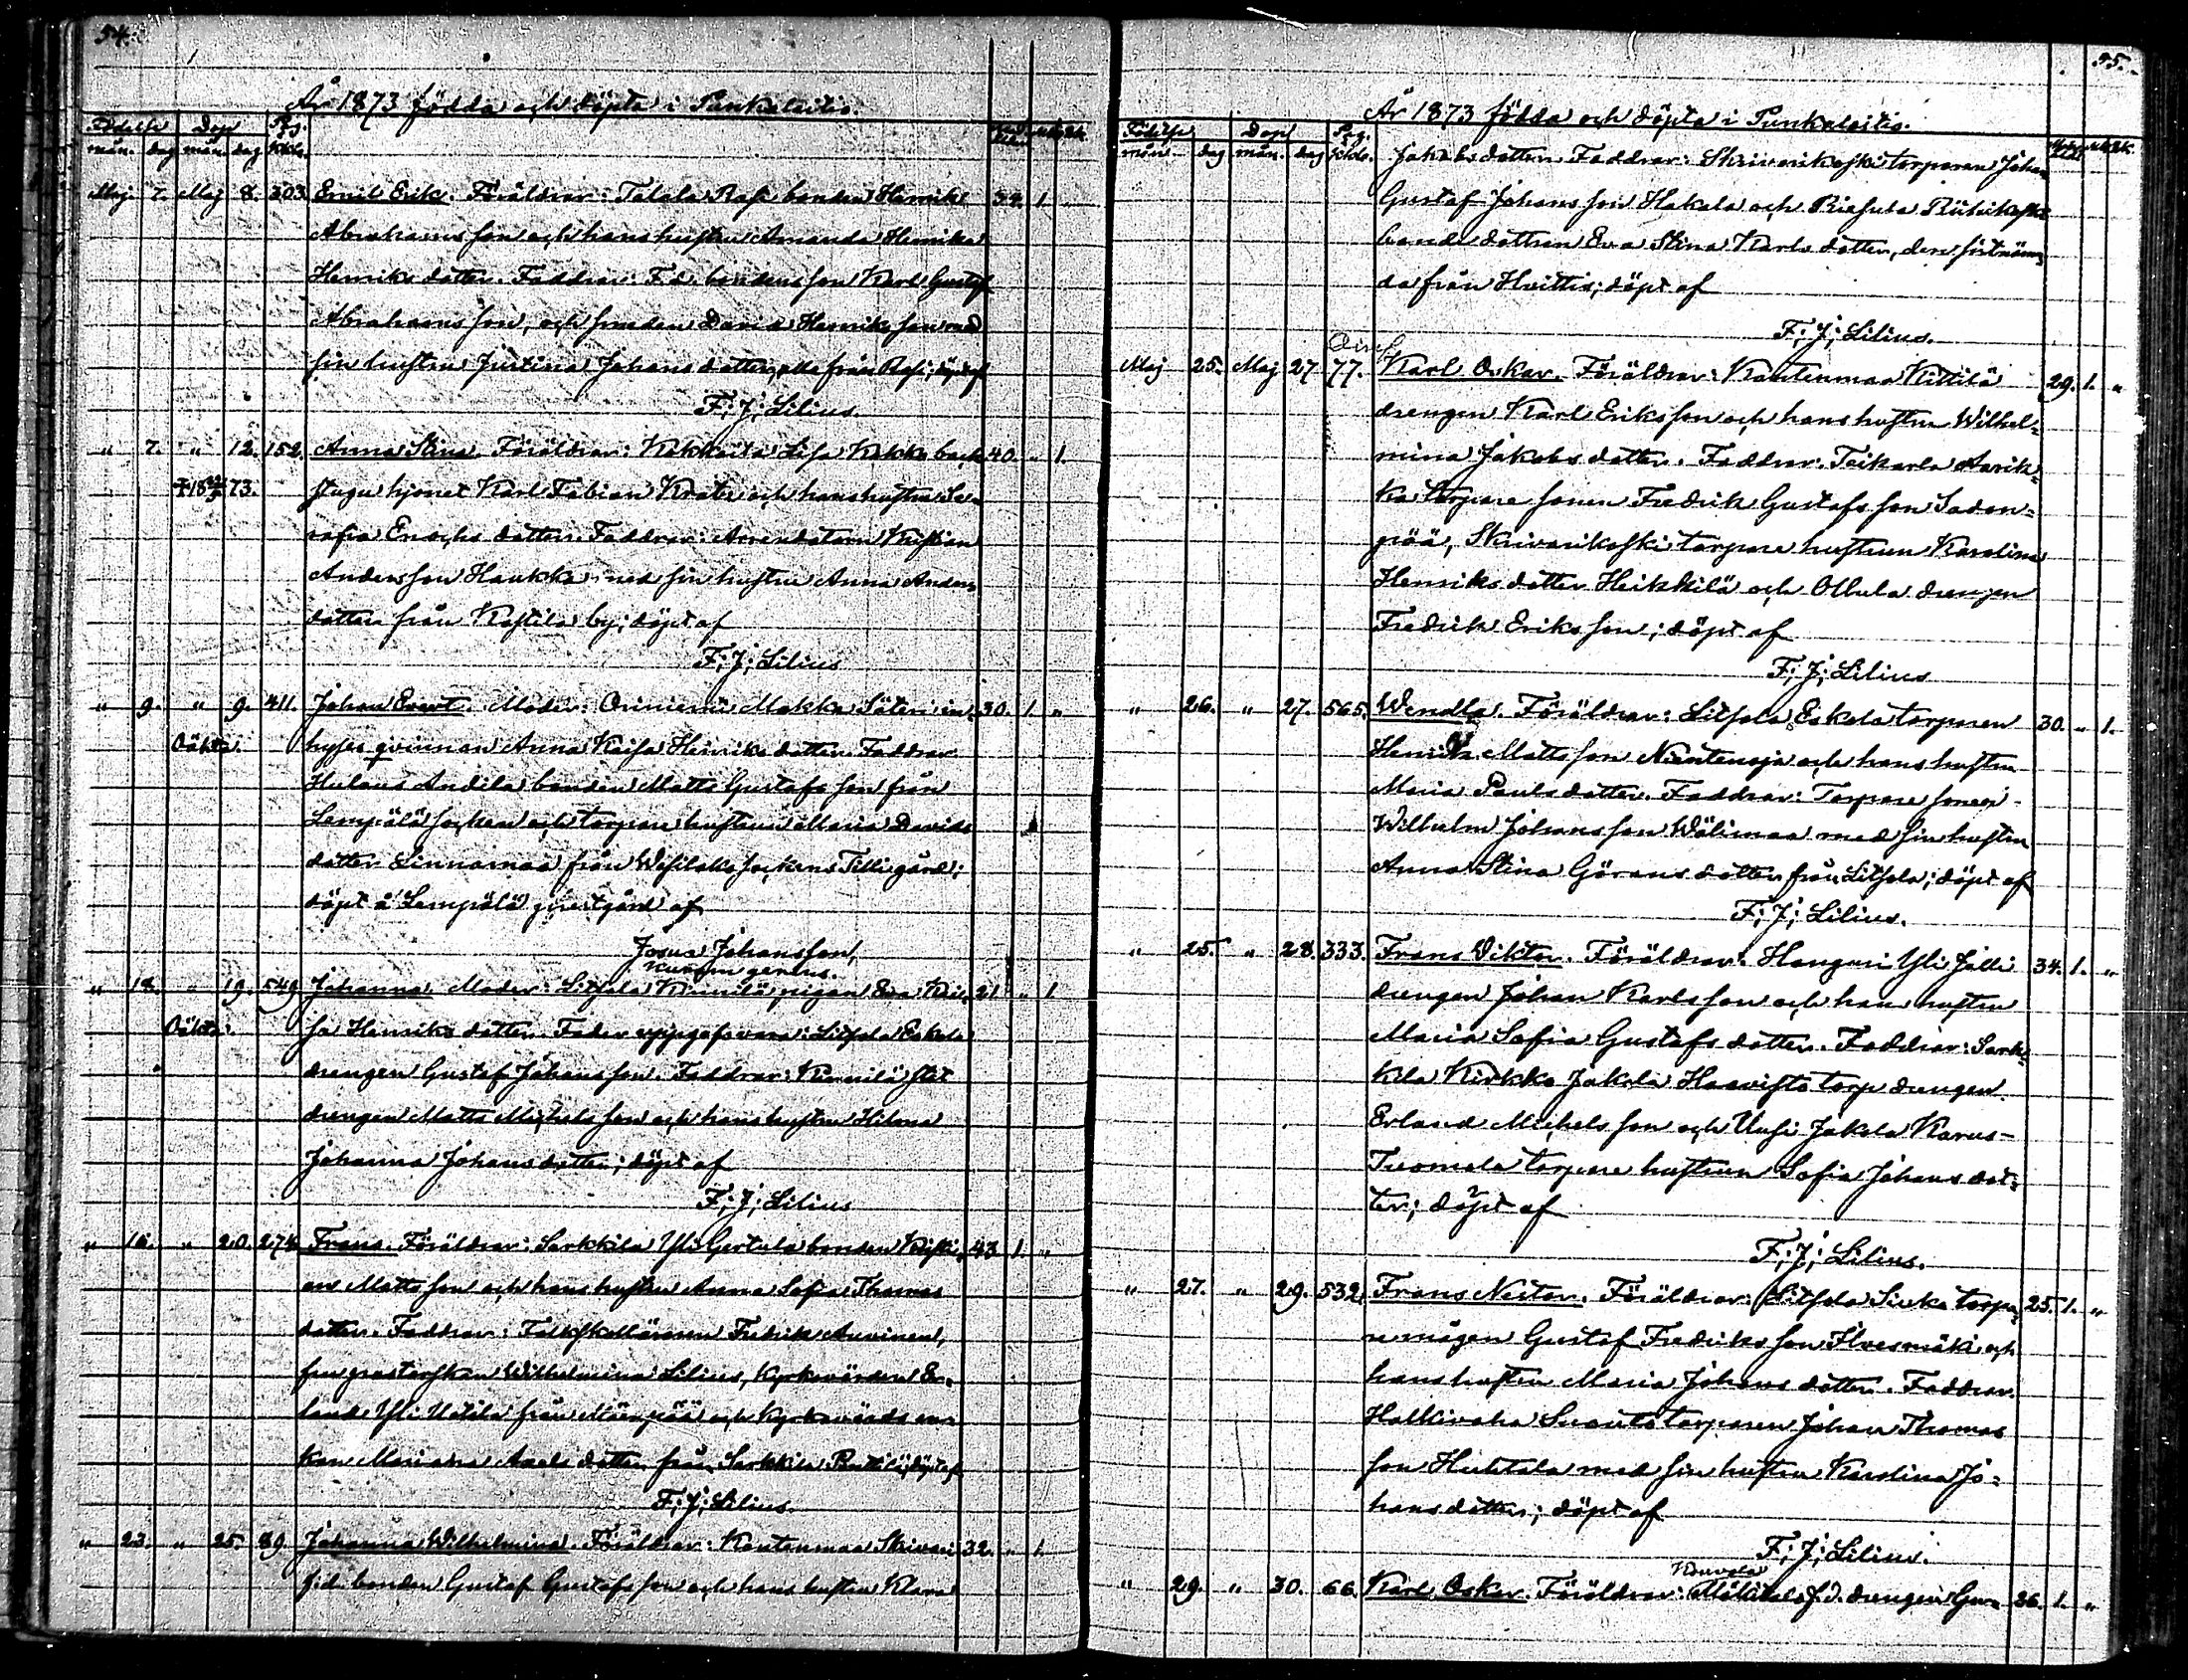 54.
År 1873 födda och döpta i Punkalaitio.
Födelse Dop Pag.
mån. dag mån. dag Kbk.
Maj. 7. Maj 8. 303. Emil Erik. Föräldrar: Talala Rasi bonden Henrik 34. 1.
Abrahamsson och hans hustru Amanda Henrika
Henriksdotter. Faddrar: F.d. bondensson Karl Gustaf
Abrahamsson, och smeden David Henriksson med
sin hustru Justina Johansdotter, alla från Rasi; döpt af
F; J; Lilius.
" 7. " 12. 152. Anna Stina. Föräldrar: Kakkaita Lisa Kakko back 40. " 1.
73. stugu hjonet Karl Fabian Krats och hans hustru Se-
rafia Enochsdotter. Faddrar: Arrendatorn Kristian
Andersson Haukka med sin hustru Anna Anders
dotter från Kostila by; döpt af
F; J; Lilius
" 9. " 9. 411. Johan Evert. Moder: Oriniemi Makka Säteri in- 30. 1 "
Oäkta. hyses qvinnan Anna Kaisa Henriksdotter. Faddrar
Hulaus Andila bonden Matts Gustafsson från
Lempälä socken och torpare hustrun Maria Davids
dotter Linnamaa från Wesilaks sockens Tilli gård;
döpt å Lempälä prestgård af
Josua Johansson,
" 18. " 19. 549. Johanna. Moder: Litsola Kinnilä pigan Eva Kai- 21 " 1
Oäkta: sa Henriksdotter. Fader uppgafs vara: Litsola Eskola
drengen Gustaf Johansson. Faddrar: Kinnilä
drengen Matts Michelsson och hans hustru Hilma
Johanna Johansdotter; döpt af
F; J; Lilius
" 16. " 20. 274. Frans. Föräldrar: Sarkkila Yli Gertula bonden Kristi- 43 1. "
an Mattsson och hans hustru Anna Sofia Thomas
dotter. Faddrar: Folkskolläraren Fredrik Auvinen,
fru prostinnan Wilhelmina Lilius, Kyrkovärden Er-
land Yli Uotila från Mäenpää och Kyrkovärds en-
kan Mariana Axels dotter från Sarkkila Pentilä; döpt af
F; J; Lilius.
" 23. " 25. 89. Johanna Wilhelmina. Föräldrar: Kantenmaa Skrivari 32. " 1.
f.d. bonden Gustaf Gustafsson och hans hustru Klara
55.
År 1873 födda och döpta i Punkalaitio.
Födelse Dop Pag.
mån dag mån. dag Kbk.
Jakobsdotter. Faddrar: Skrivarikoski torparen Johan
Gustaf Johansson Hakala och Riesula Riihikoski
bondedottren Eva Stina Karlsdotter, den sistnämn-
da från Hvittis; döpt af
F; J; Lilius.
Maj 25. Maj 27 77. Karl Oskar. Föräldrar: Kantenmaa Kittilä 29. 1. "
drengen Karl Eriksson och hans hustru Wilhel-
mina Jakobsdotter. Faddrar: Teikarla Aarik-
ka torpare sonen Fredrik Gustafsson Sadan-
pää, Skrivarikoski torpare hustrun Karolina
Henriksdotter Heikkilä och Ollula drengen
Fredrik Eriksson; döpt af
F; J; Lilius
" 26. " 27. 565. Wendla. Föräldrar: Litsola Eskola torparen 30. " 1.
Henrik Mattsson Nientenoja och hans hustru
Maria Paulsdotter. Faddrar: Torpare sonen
Wilhelm Johansson Wälimaa med sin hustru
Anna Stina Göransdotter från Litsola; döpt af
F; J; Lilius.
" 25. " 28. 333. Frans Viktor. Föräldrar: Hanguri Yli Jälli 34. 1. "
drengen Johan Karlsson och hans hustru
Maria Sofia Gustafsdotter. Faddrar: Sark-
kila Kirkko Jakola Haavisto torp drengen
Erland Michelsson och Uusi Jakola Karus-
Tuomola torpare hustrun Sofia Johansdot-
ter; döpt af
F; J; Lilius.
" 27. " 29. 532. Frans Nestor. Föräldrar: Litsola Sirka torpa- 25. 1. "
re mågen Gustaf Fredriksson Ilvesmäki och
hans hustru Maria Johansdotter. Faddrar
Halkivaha Suonto torparen Johan Thomas
son Huhtala med sin hustru Karolina Jo-
hansdotter; döpt af
F; J; Lilius.
Kouvola
" 29. " 30. 66. Karl Oskar. Föräldrar: f.d. drengen Gu- 36. 1. "